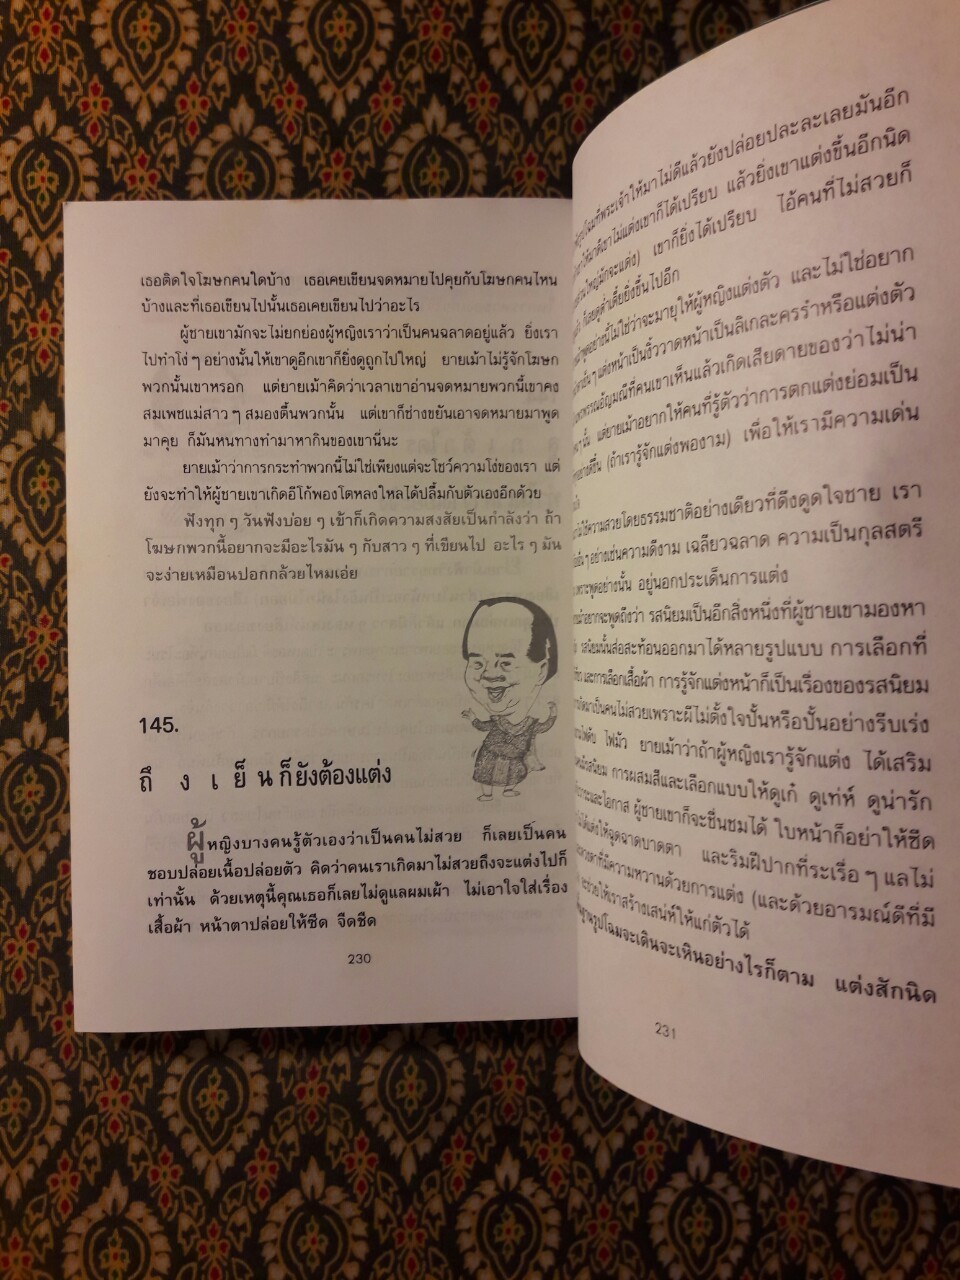 เธอติดใจโฆษกคนใดบ้าง เธอเคยเขียนจดหมายไปคุยกับโฆษกคนไหน
บ้างและที่เธอเขียนไปนั้นเธอเคยเขียนไปว่าอะไร
ผู้ชายเขามักจะไม่ยกย่องผู้หญิงเราว่าเป็นคนฉลาดอยู่แล้ว ยิ่งเรา
ไปทำโง่ ๆ อย่างนั้นให้เขาดูอีกเขาก็ยิ่งดูถูกไปใหญ่ ยายเม้าไม่รู้จักโฆษก
พวกนั้นเขาหรอก แต่ยายเม้าคิดว่าเวลาเขาอ่านจดหมายพวกนี้เขาคง
สมเพชแม่สาว ๆ สมองตื้นพวกนั้น แต่เขาก็ช่างขยันเอาจดหมายมาพูด
มาคุย ก็มันหนทางทำมาหากินของเขานี่นะ
ยายเม้าว่าการกระทำพวกนี้ไม่ใช่เพียงแต่จะโชว์ความโง่ของเรา แต่
ยังจะทำให้ผู้ชายเขาเกิดอีโก้พองโตหลงใหลได้ปลื้มกับตัวเองอีกด้วย
ฟังทุก ๆ วันฟังบ่อย ๆ เข้าก็เกิดความสงสัยเป็นกำลังว่า ถ้า
โฆษกพวกนี้อยากจะมีอะไรมัน ๆ กับสาว ๆ ที่เขียนไป อะไร ๆ มัน
จะง่ายเหมือนปอกกล้วยไหมเอ่ย
145.
ถึงเย็นก็ยังต้องแต่ง
ผู้หญิงบางคนรู้ตัวเองว่าเป็นคนไม่สวย ก็เลยเป็นคน
ชอบปล่อยเนื้อปล่อยตัว คิดว่าคนเราเกิดมาไม่สวยถึงจะแต่งไปก็
เท่านั้น ด้วยเหตุนี้คุณเธอก็เลยไม่ดูแลผมเผ้า ไม่เอาใจใส่เรื่อง
เสื้อผ้า หน้าตาปล่อยให้ซีด จืดชืด
230
รูปโฉมที่พระเจ้าให้มาไม่ดีแล้วยังปล่อยปละละเลยมันอีก
ให้มาดีเขาไม่แต่งเขาก็ได้เปรียบ แล้วยิ่งเขาแต่งขึ้นอีกนิด
ใหญ่มักจะแต่ง) เขาก็ยิ่งได้เปรียบ ไอ้คนที่ไม่สวยก็
ก็เลยดูต่ำเตี้ยยิ่งขึ้นไปอีก
พูดอย่างนี้ไม่ใช่ว่าจะมายุให้ผู้หญิงแต่งตัว และไม่ใช่อยาก
แต่งหน้าเป็นงิ้ววาดหน้าเป็นลิเกละครรำหรือแต่งตัว
พรรณอัญมณีที่คนเขาเห็นแล้วเกิดเสียดายของว่าไม่น่า
นั้น แต่ยายเม้าอยากให้คนที่รู้ตัวว่าการตกแต่งย่อมเป็น
ดีขึ้น (ถ้าเรารู้จักแต่งพองาม) เพื่อให้เรามีความเด่น
ใช่ความสวยโดยธรรมชาติอย่างเดียวที่ดึงดูดใจชาย เรา
อื่น ๆ อย่างเช่นความดีงาม เฉลียวฉลาด ความเป็นกุลสตรี
พูดอย่างนั้น อยู่นอกประเด็นการแต่ง
อยากจะพูดถึงว่า รสนิยมเป็นอีกสิ่งหนึ่งที่ผู้ชายเขามองหา
รสนิยมนั้นส่อสะท้อนออกมาได้หลายรูปแบบ การเลือกที่
และการเลือกเสื้อผ้า การรู้จักแต่งหน้าก็เป็นเรื่องของรสนิยม
มาเป็นคนไม่สวยเพราะผีไม่ตั้งใจปั้นหรือปั้นอย่างรีบเร่ง
ไฟดับ ไฟมัว ยายเม้าว่าถ้าผู้หญิงเรารู้จักแต่ง ได้เสริม
รสนิยม การผสมสีและเลือกแบบให้ดูเก๋ ดูเท่ห์ ดูน่ารัก
และโอกาส ผู้ชายเขาก็จะชื่นชมได้ ใบหน้าก็อย่าให้ซีด
แต่งให้ฉูดฉาดบาดตา และริมฝีปากที่ระเรื่อ ๆ แลไม่
ที่มีความหวานด้วยการแต่ง (และด้วยอารมณ์ดีที่มี
จะช่วยให้เราสร้างเสน่ห์ให้แก่ตัวได้
รูปโฉมจะเดินจะเหินอย่างไรก็ตาม แต่งสักนิด
231